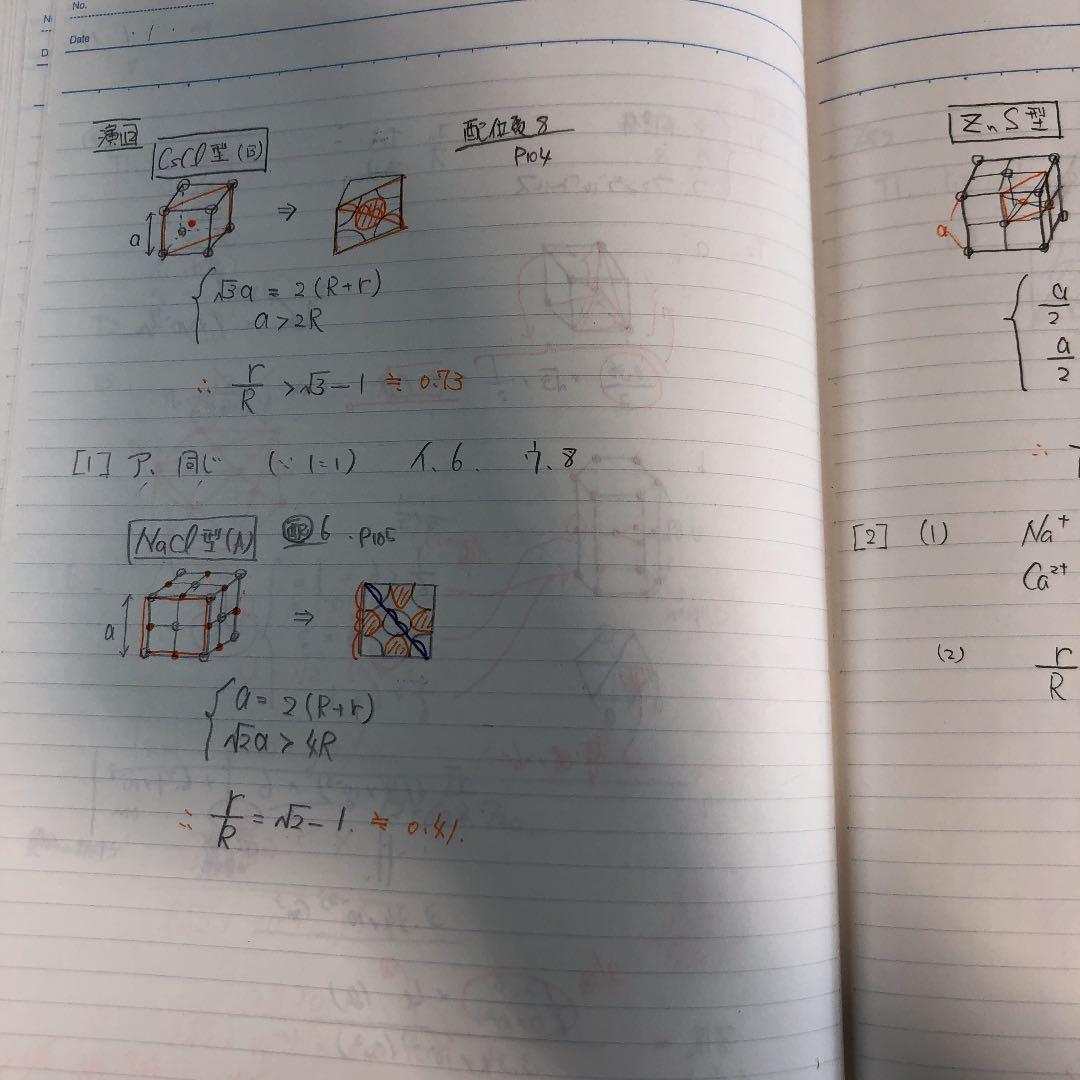 No.
Date
演12
CsCl型(B)
配位数8
P104
a
⇒
√3a = 2(R+r)
a>2R
∴ r/R >√3-1 ≒ 0.73
[1] ア、同じ (∵ 1=1) イ、6. ウ、8
NaCl型(A) 配6 . P105
a
⇒
a = 2(R+r)
√2a > 4R
∴ r/R = √2-1. ≒ 0.41.
ZnS型
a
a/2
a/2
∴
[2] (1) Na⁺
Ca²⁺
(2) r/R